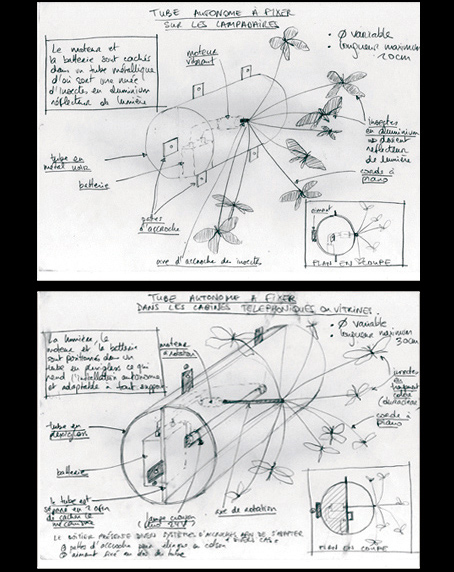 TUBE AUTONOME A FIXER
SUR LES LAMPADAIRES
Le moteur et
la batterie sont cachés
dans un tube métallique
d'où sort une nuée
d'insectes en aluminium
réflecteur de lumière
moteur
vibrant
• Ø variable
• longueur maximum
20cm
Insectes
en aluminium
réflecteur
de lumière
corde à
piano
tube en
métal noir
batterie
pattes
d'accroche
axe d'accroche des insectes
aimant
PLAN EN COUPE
TUBE AUTONOME A FIXER
DANS LES CABINES TELEPHONIQUES OU VITRINES
La lumière, le
moteur et la batterie
sont positionnés dans un
tube en plexiglass ce qui
rend l'installation autonome
et adaptable à tout support
moteur
à rotation
• Ø variable
• longueur maximum
30cm
corde à
piano
tube en
plexiglass
batterie
le tube est
en 2 afin
de cacher le
mécanisme
lampe crayon
axe de rotation
PLAN EN COUPE